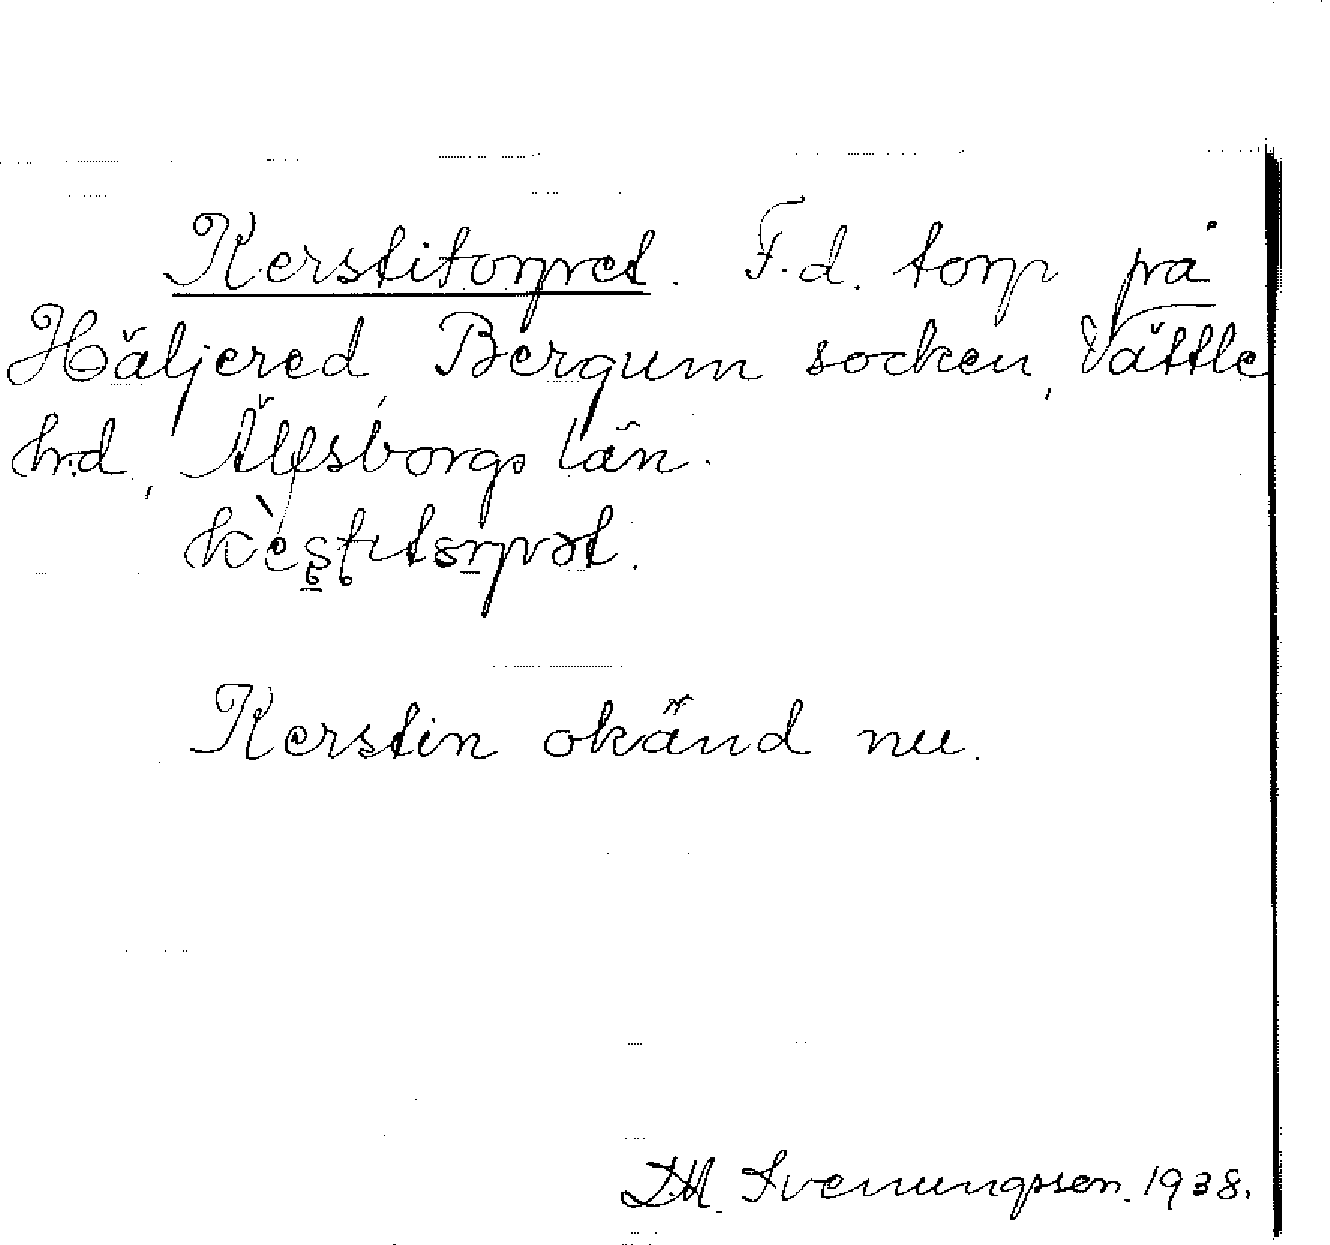 Kerstitorpet. F.d. torp på
Häljered, Bergum socken, Vättle
hd, Älfsborgs län.
Kerstin okänd nu.
Svenungsson. 1938.